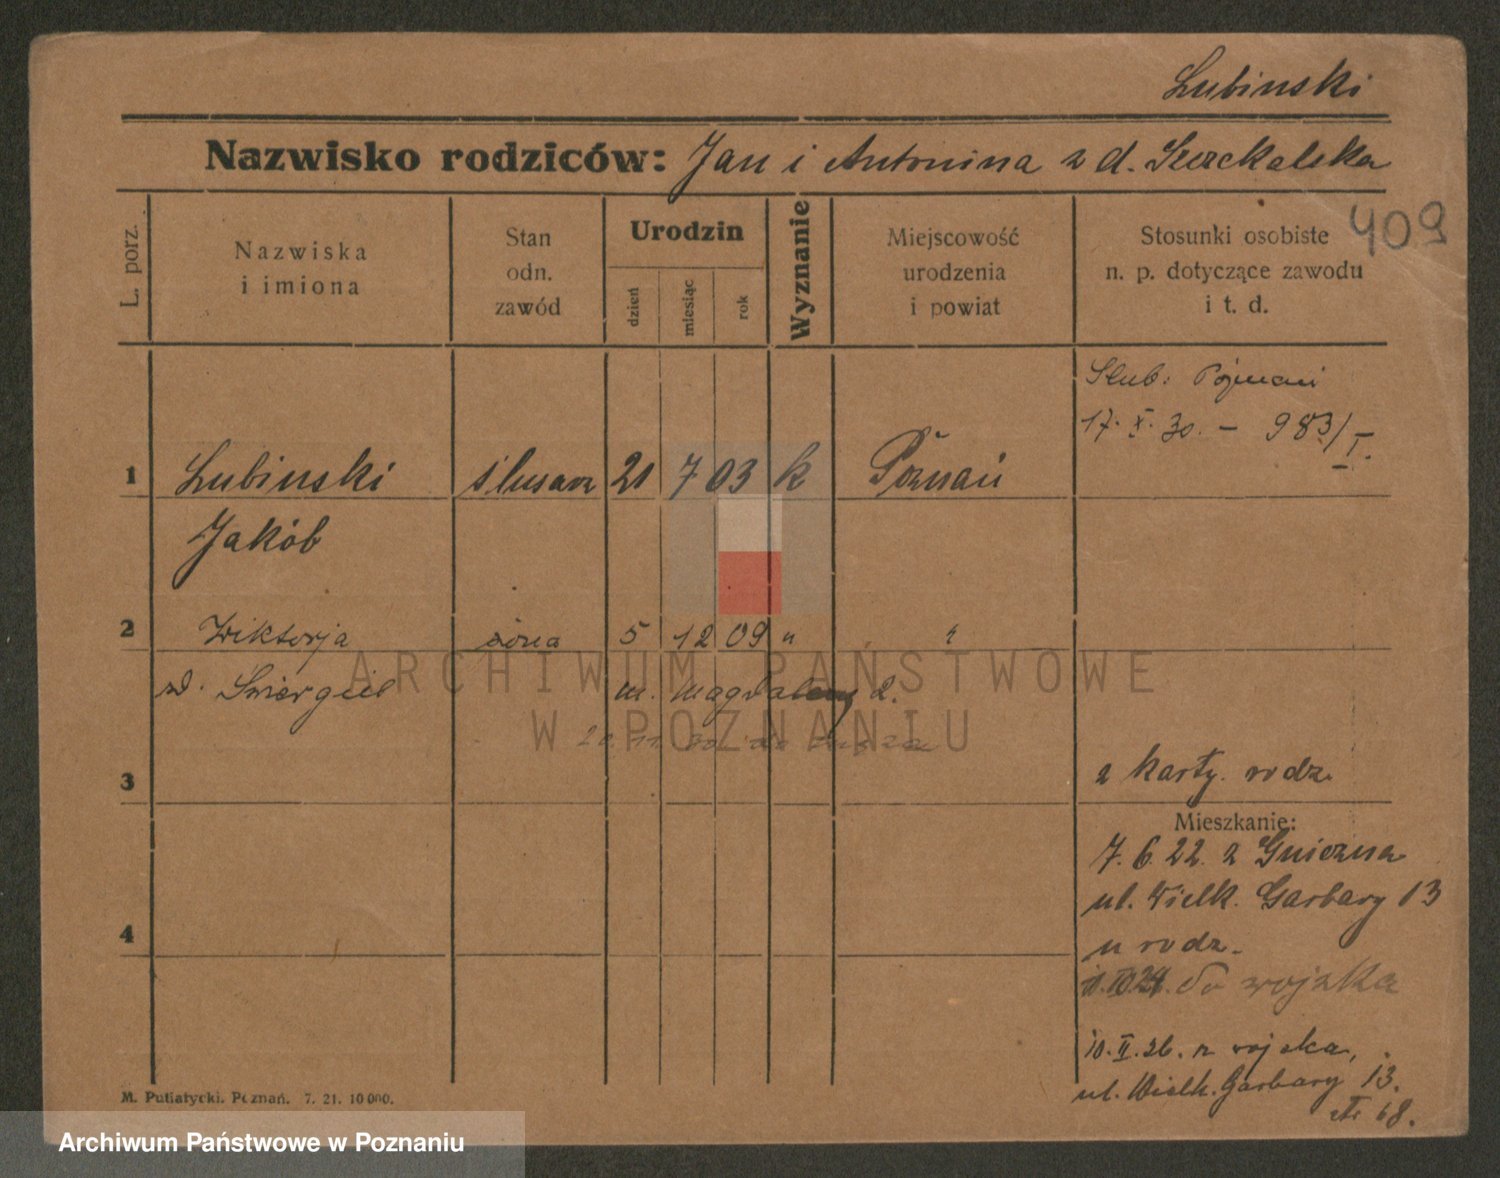 Lubinski
Nazwisko rodziców: Jan i Antonina z d.
409
L. porz.
Nazwiska
i imiona
Stan
odn.
zawód
Urodzin
dzień
miesiąc
rok
Wyznanie
Miejscowość
urodzenia
i powiat
Stosunki osobiste
n. p. dotyczące zawodu
i t. d.
Slub: Poznań
17. X. 30. – 983/I.
1 Lubinski ślusarz 21 7 03 k Poznań
Jakób
2 Wiktorja żona 5 12 09 " "
z d.
m. Magdaleny 2.
ARCHIWUM PAŃSTWOWE
W POZNANIU
3
z karty rodz.
Mieszkanie:
7. 6. 22. z Gniezna
ul. Wielk. Garbary 13
4
u rodz.
do wojska
10. II. 26. z wojska,
ul. Wielk. Garbary 13.
68.
M. Putiatycki. Poznań. 7. 21. 10 000.
Archiwum Państwowe w Poznaniu